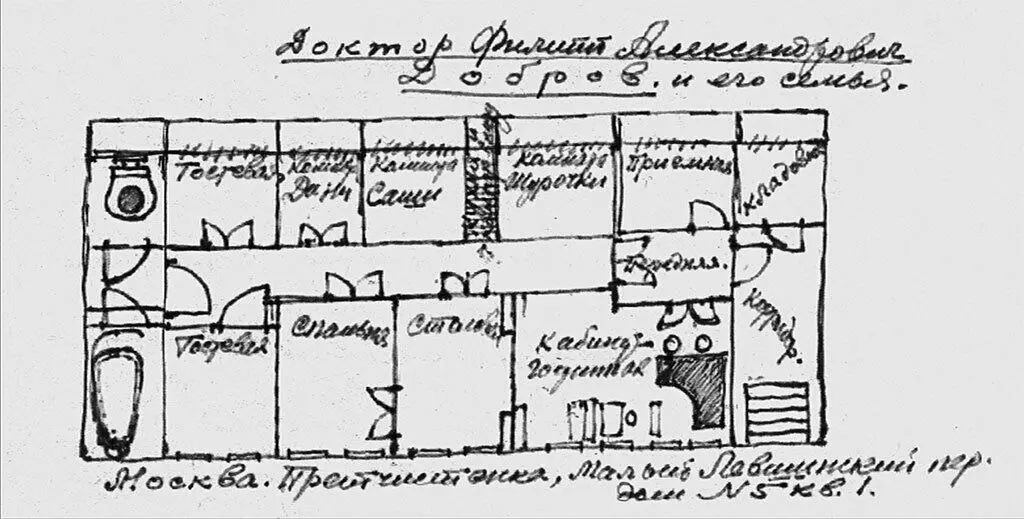 Доктор Филипп Александрович
Добров. и его семья.
Гостевая
Комната
Дани
Комната
Саши
Комната
Шурочки
Приемная
Кладовая
Передняя.
Коридор.
Гостевая
Спальня
Столовая
Кабинет
гостиная
Москва. Пречистенка, Малый Левшинский пер.
дом N 5 кв. 1.